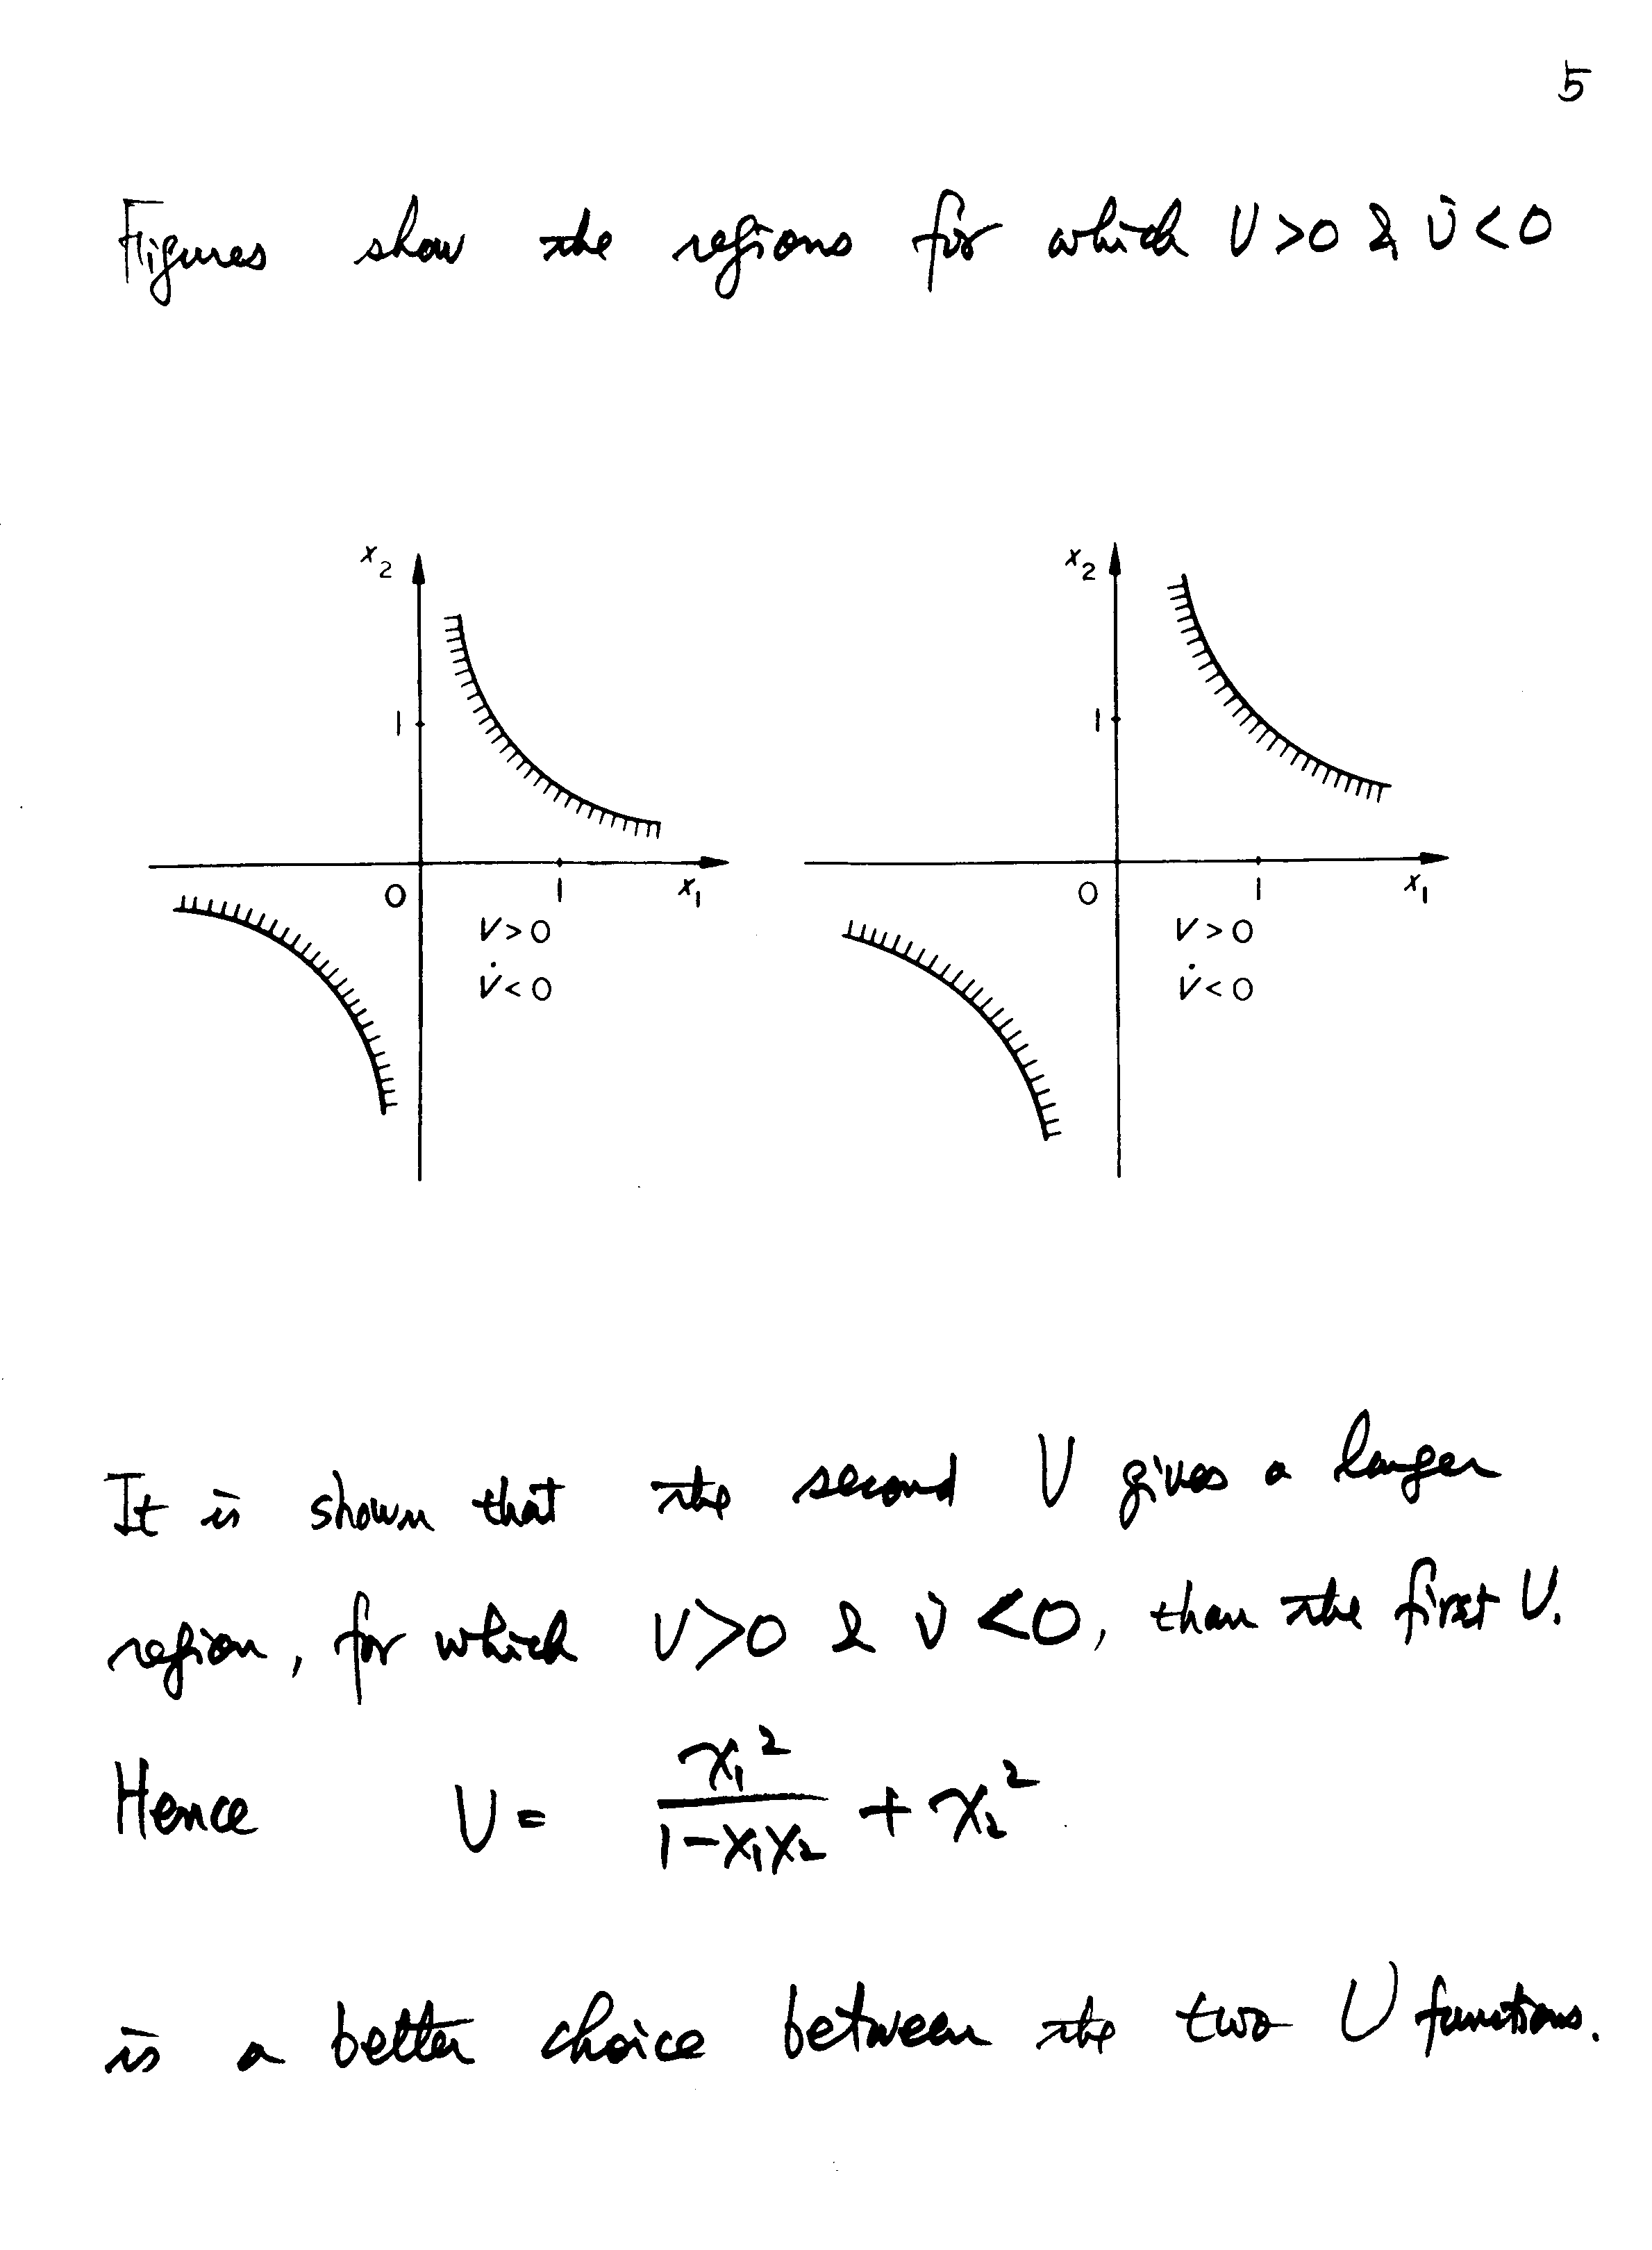 5
Figures show the regions for which V>0 & V̇<0
x₂ x₂
1 1
0 1 x₁ 0 1 x₁
V>0 V>0
V̇<0 V̇<0
It is shown that the second V gives a larger
region, for which V>0 & V̇<0, than the first V.
Hence V = x₁²/(1-x₁x₂) + x₂²
is a better choice between the two V functions.